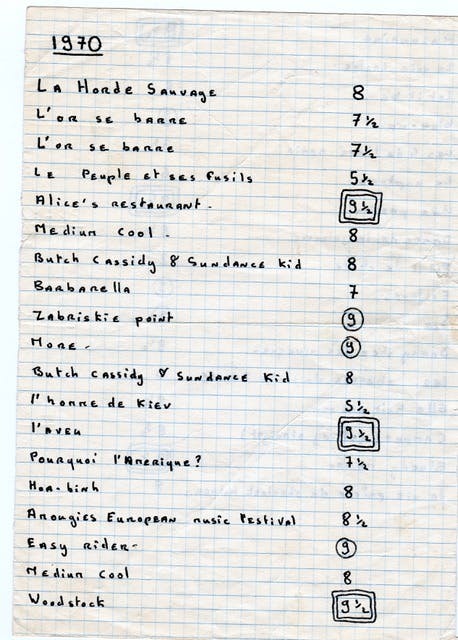 1970
La Horde Sauvage 8
L'or se barre 7 1/2
L'or se barre 7 1/2
Le Peuple et ses fusils 5 1/2
Alice's restaurant. 9 1/2
Medium Cool. 8
Butch Cassidy & Sundance Kid 8
Barbarella 7
Zabriskie point 9
More. 9
Butch Cassidy & Sundance Kid 8
l'homme de Kiev 5 1/2
l'aveu 9 1/2
Pourquoi l'Amerique? 7 1/2
Hoa-binh 8
Amougies European music Festival 8 1/2
Easy rider- 9
Medium Cool 8
Woodstock 9 1/2